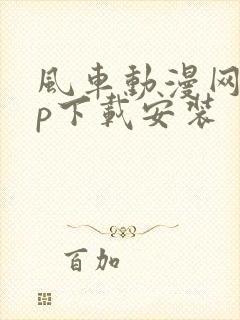 風車動漫网
p下載安装
百加